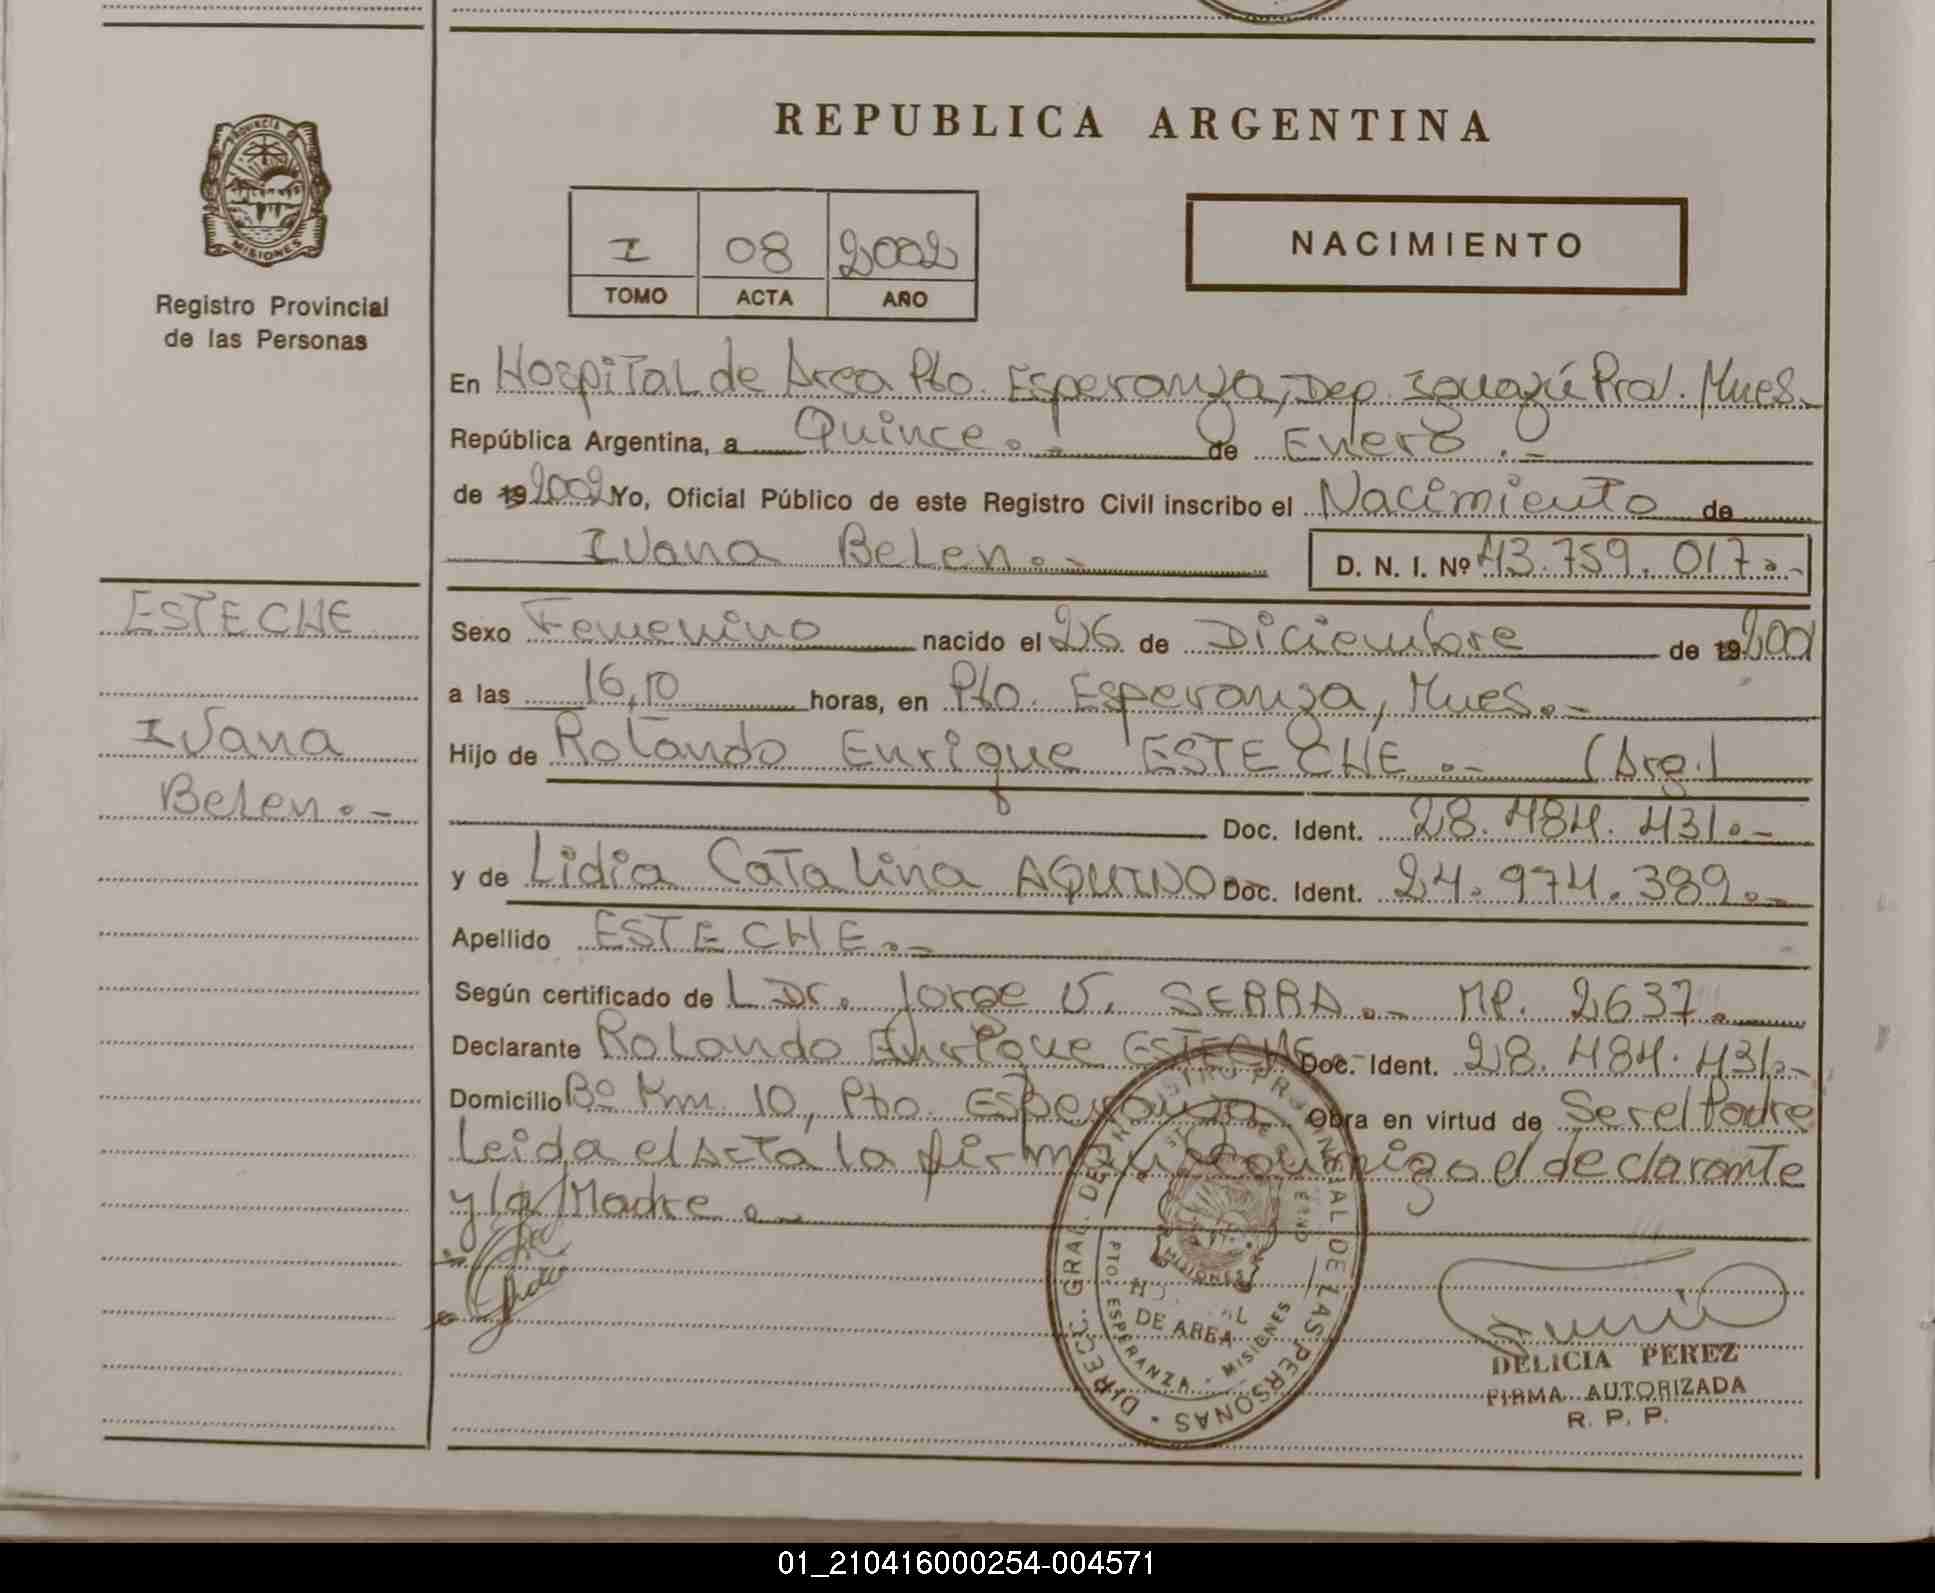 REPUBLICA ARGENTINA
PROVINCIA DE
MISIONES
Registro Provincial
de las Personas
I 08 2002
TOMO ACTA AÑO
NACIMIENTO
En Hospital de Area Pto. Esperanza, Dep. Iguazú Prov. Mnes.-
República Argentina, a Quince.- de Enero.-
de 19 2002 Yo, Oficial Público de este Registro Civil inscribo el Nacimiento de
Ivana Belen.- D. N. I. Nº 43.759.017.-
ESTECHE
Ivana
Belen.-
Sexo Femenino nacido el 26 de Diciembre de 19 2001
a las 16,10 horas, en Pto. Esperanza, Mnes.-
Hijo de Rolando Enrique ESTECHE.- (Arg.)
Doc. Ident. 28.484.431.-
y de Lidia Catalina AQUINO Doc. Ident. 24.974.389.-
Apellido ESTECHE.-
Según certificado de L Dr. Jorge V. SERRA.- MP. 2637.-
Declarante Rolando Enrique ESTECHE Doc. Ident. 28.484.431.-
Domicilio Bº Km. 10, Pto. Esperanza Obra en virtud de Ser el Padre
Leida el Acta la firman conmigo el declarante
y la Madre.-
DIRECC. GRAL. DEL REGISTRO PROVINCIAL DE LAS PERSONAS
MISIONES
HOSPITAL
DE AREA
PTO. ESPERANZA - MISIONES
DELICIA PEREZ
FIRMA AUTORIZADA
R. P. P.
01_210416000254-004571